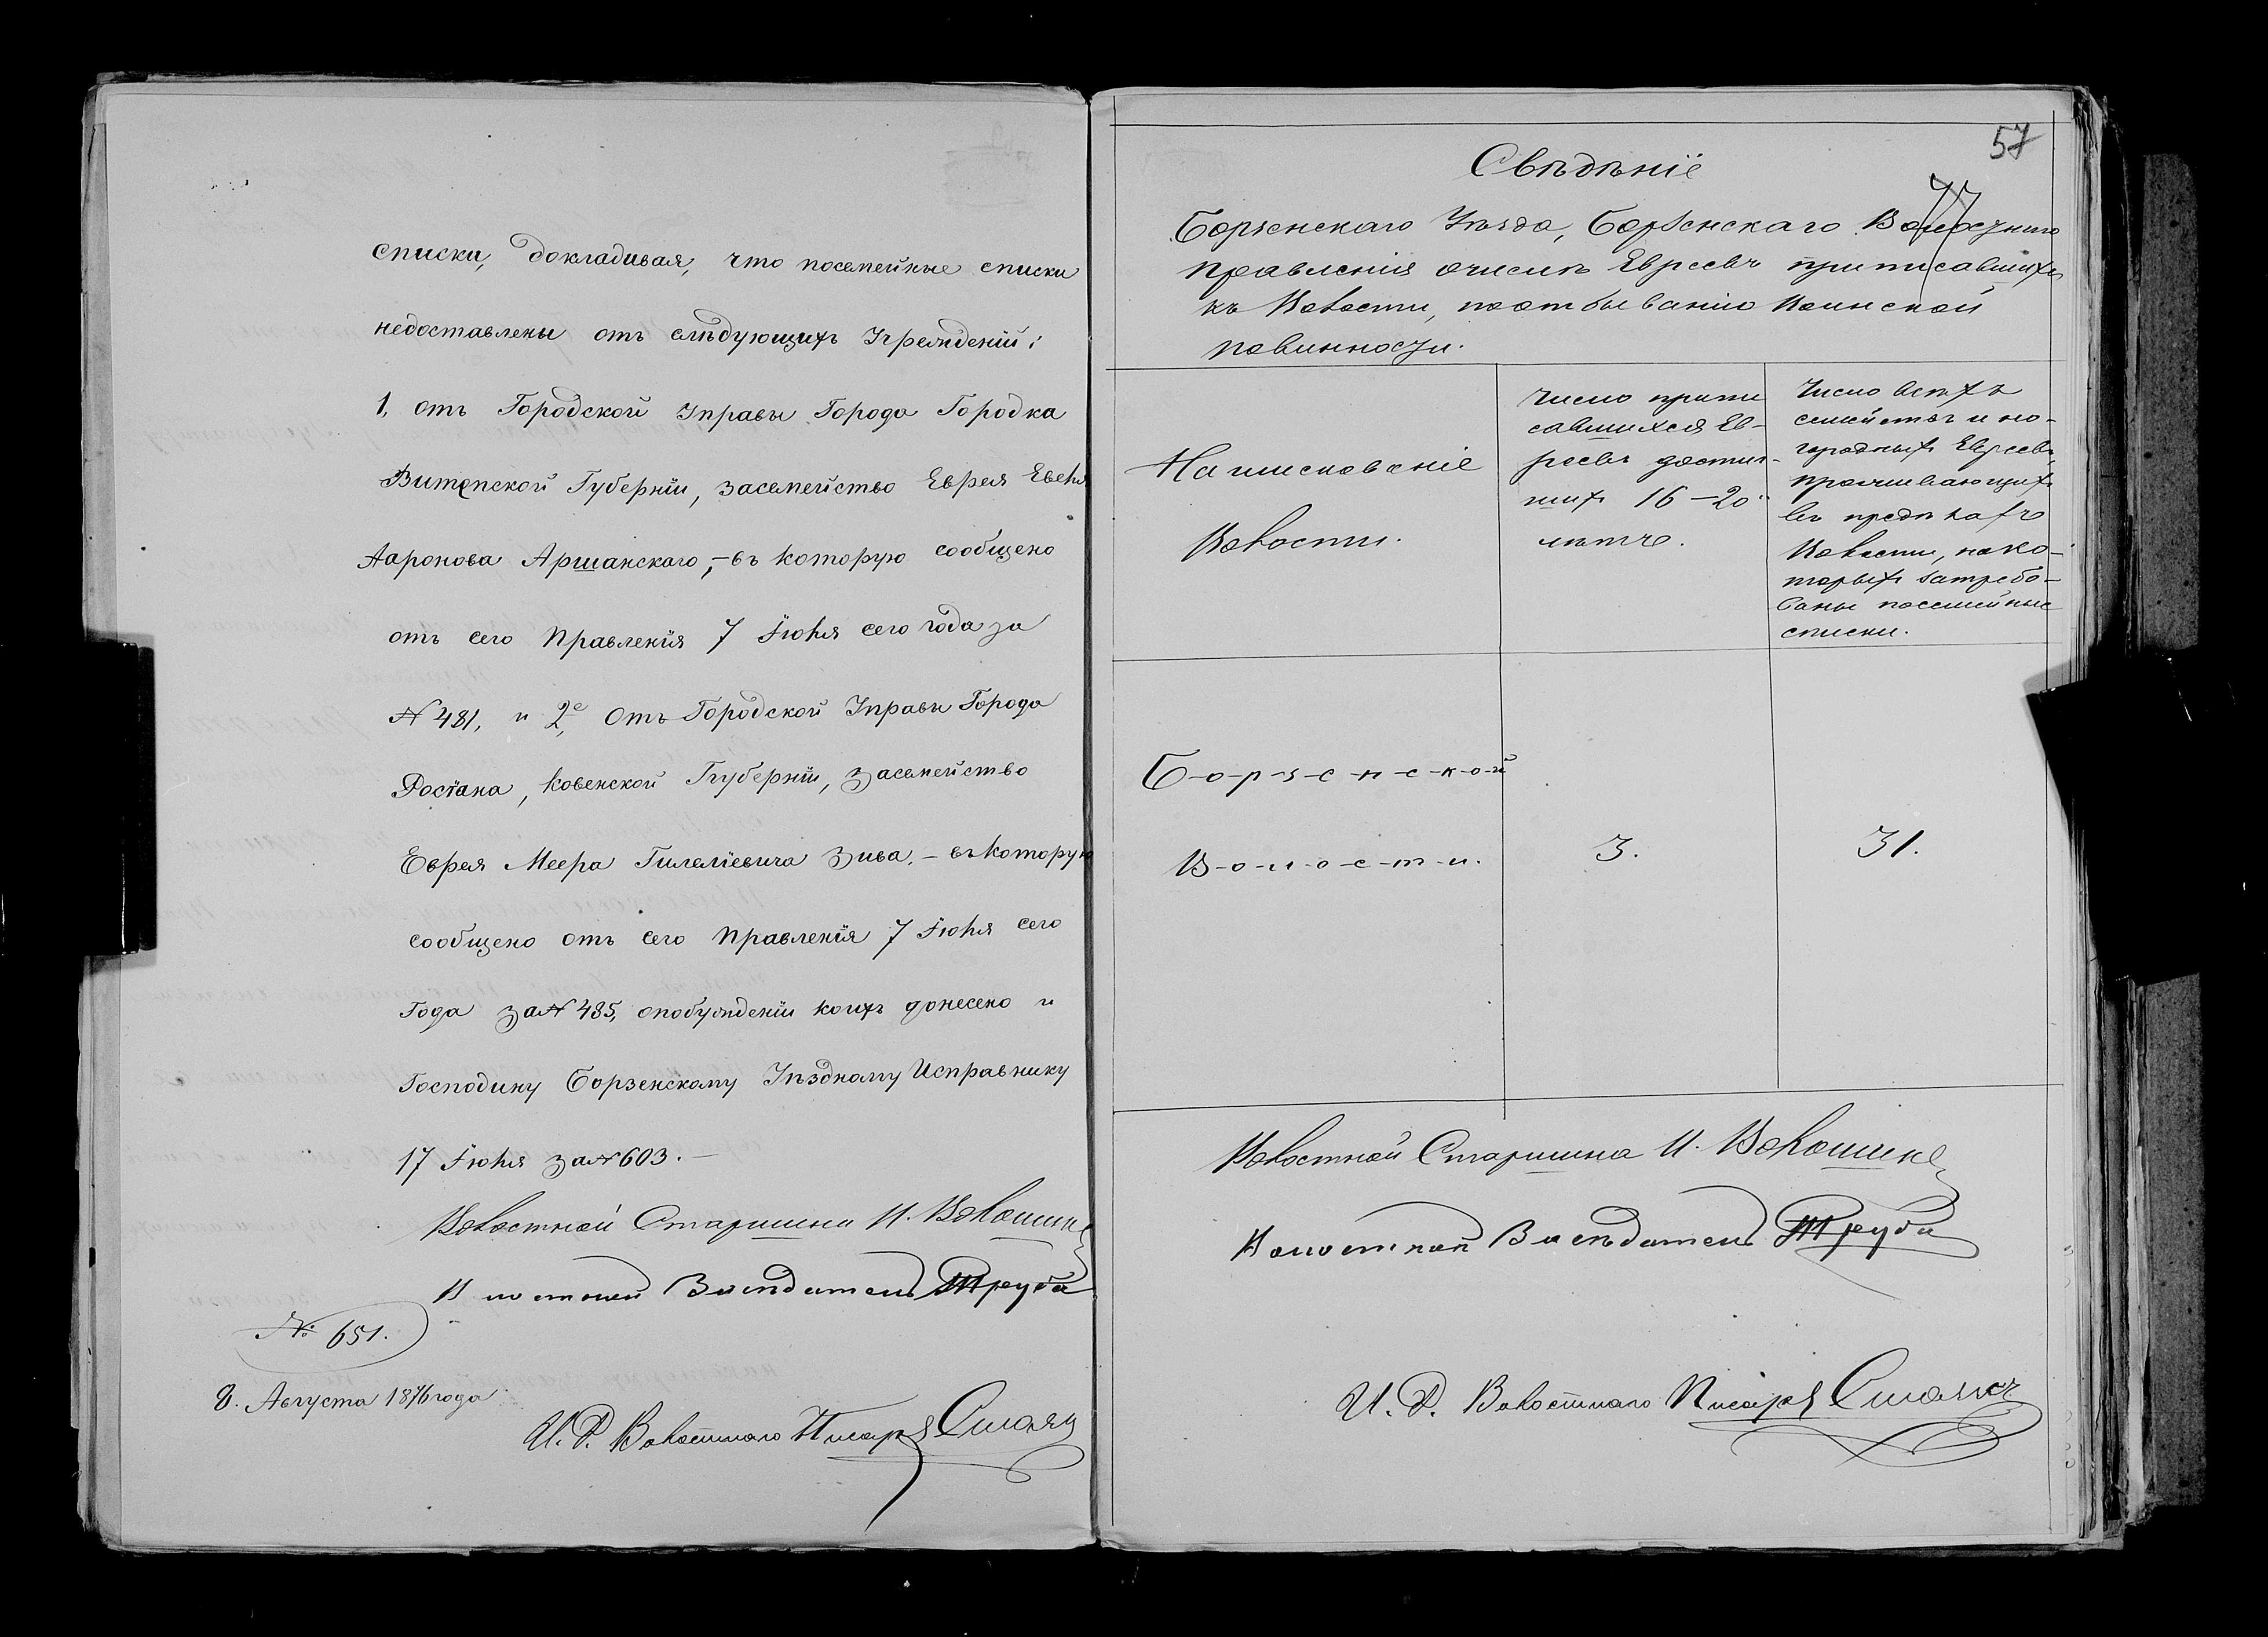 списки, докладивая, что посемейные списки
недоставлены отъ слѣдующихъ Учрежденій:
1, отъ Городской Управы Города Городка
Витепской Губерніи, засемейство Еврея Евеля
Ааронова Аршанскаго,- въ которую сообщено
отъ сего Правленія 7 Іюля сего года за
№ 481, и 2е, Отъ Городской Управы Города
Росіана, Ковенской Губерніи, засемейство
Еврея Меера Гилеліевича Зива,- въ которую
сообщено отъ сего Правленія 7 Іюля сего
Года за № 485, опобужденіи коихъ донесено и
Господину Борзенскому Уѣздному Исправнику
17 Іюля за № 603.-
Волостной Старшина И. Волошин
Волостной Засѣдатель Труба
№ 651.
8. Августа 1876 года
И. Д. Волостнаго Писаря
57
77
Свѣдѣніе
Борзенскаго Уѣзда, Борзенскаго Волостнаго
Правленія очислѣ Евреевъ приписавшихся
къ Волости, поотбыванію Воинской
повинности.
Наименованіе
Волости.
Число припи
савшихся Ев-
реевъ достиг-
шихъ 16-20
лѣтъ.
Число всѣхъ
семействъ ино-
городныхъ Евреевъ,
проживающихъ
въ предѣлахъ
Волости, нако-
торыхъ затребо-
ваны посемейные
списки.
Б-о-р-з-е-н-с-к-о-й
В-о-л-о-с-т-и.
3.
31.
Волостной Старшина И. Волошин
Волостной Засѣдатель Труба
И. Д. Волостнаго Писаря